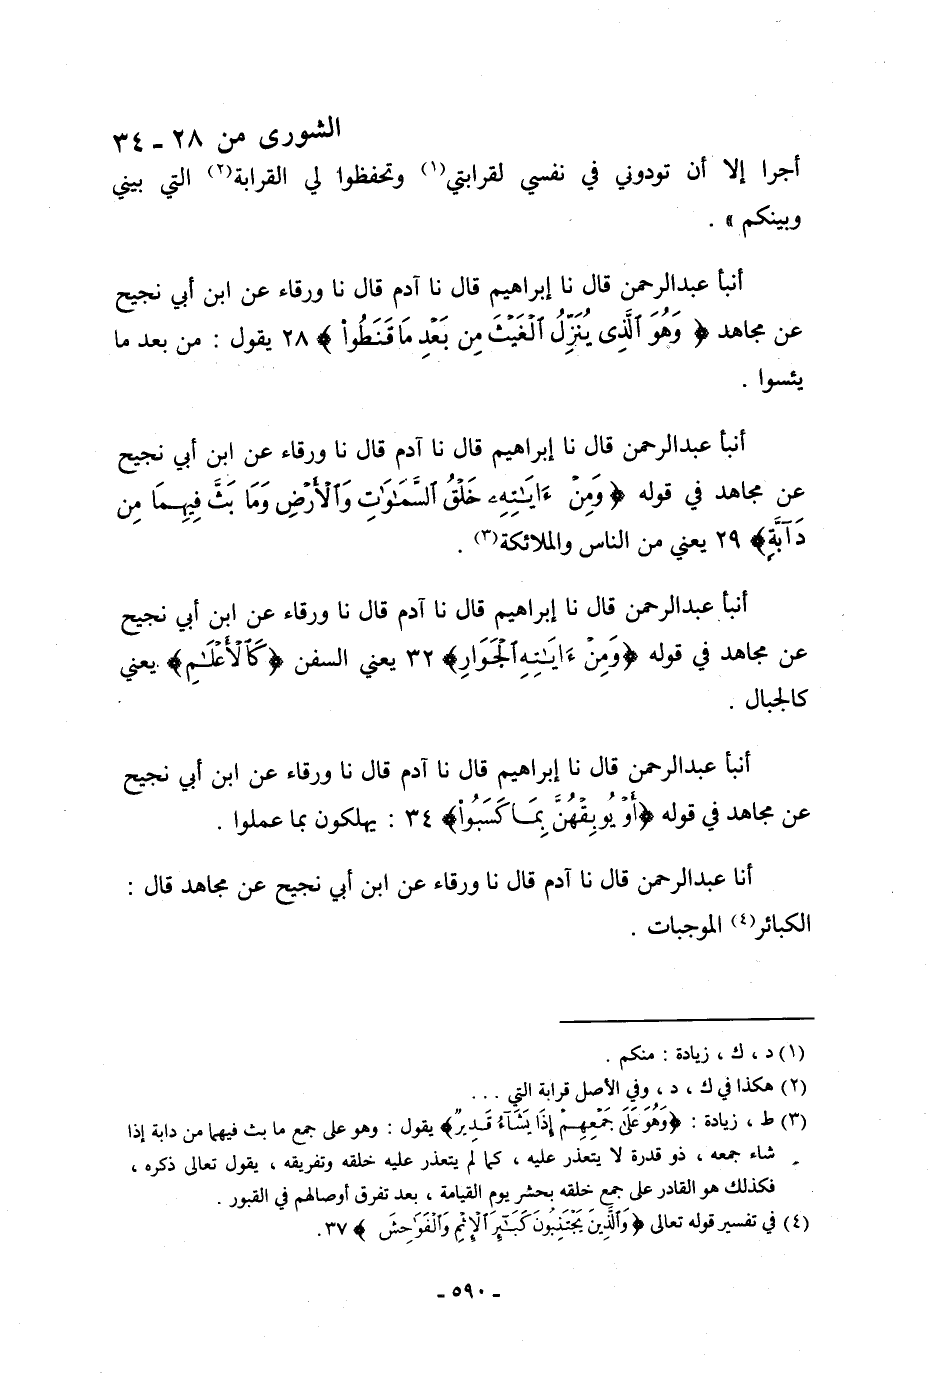 الشورى من ٢٨ ـ ٣٤
أجرا إلا أن تودوني في نفسي لقرابتي(١) وتحفظوا لي القرابة(٢) التي بيني
وبينكم » .
أنبأ عبدالرحمن قال نا إبراهيم قال نا آدم قال نا ورقاء عن ابن أبي نجيح
عن مجاهد ﴿ وَهُوَ ٱلَّذِى يُنَزِّلُ ٱلْغَيْثَ مِن بَعْدِ مَا قَنَطُوا۟ ﴾ ٢٨ يقول : من بعد ما
يئسوا .
أنبأ عبدالرحمن قال نا إبراهيم قال نا آدم قال نا ورقاء عن ابن أبي نجيح
عن مجاهد في قوله ﴿ وَمِنْ ءَايَـٰتِهِۦ خَلْقُ ٱلسَّمَـٰوَٰتِ وَٱلْأَرْضِ وَمَا بَثَّ فِيهِمَا مِن
دَآبَّةٍ﴾ ٢٩ يعني من الناس والملائكة(٣) .
أنبأ عبدالرحمن قال نا إبراهيم قال نا آدم قال نا ورقاء عن ابن أبي نجيح
عن مجاهد في قوله ﴿وَمِنْ ءَايَـٰتِهِ ٱلْجَوَارِ﴾ ٣٢ يعني السفن ﴿كَٱلْأَعْلَـٰمِ﴾ يعني
كالجبال .
أنبأ عبدالرحمن قال نا إبراهيم قال نا آدم قال نا ورقاء عن ابن أبي نجيح
عن مجاهد في قوله ﴿أَوْ يُوبِقْهُنَّ بِمَا كَسَبُوا۟﴾ ٣٤ : يهلكون بما عملوا .
أنا عبدالرحمن قال نا آدم قال نا ورقاء عن ابن أبي نجيح عن مجاهد قال :
الكبائر(٤) الموجبات .
(١) د ، ك ، زيادة : منكم .
(٢) هكذا في ك ، د ، وفي الأصل قرابة التي . . .
(٣) ط ، زيادة : ﴿وَهُوَ عَلَىٰ جَمْعِهِمْ إِذَا يَشَآءُ قَدِيرٌ﴾ يقول : وهو على جمع ما بث فيهما من دابة إذا
شاء جمعه ، ذو قدرة لا يتعذر عليه ، كما لم يتعذر عليه خلقه وتفريقه ، يقول تعالى ذكره ،
فكذلك هو القادر على جمع خلقه بحشر يوم القيامة ، بعد تفرق أوصالهم في القبور .
(٤) في تفسير قوله تعالى ﴿ وَٱلَّذِينَ يَجْتَنِبُونَ كَبَـٰٓئِرَ ٱلْإِثْمِ وَٱلْفَوَٰحِشَ ﴾ ٣٧.
ـ ٥٩٠ ـ